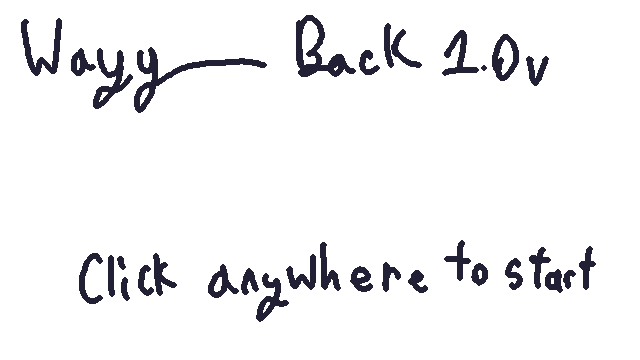 Wayy Back 1.0v
Click anywhere to start